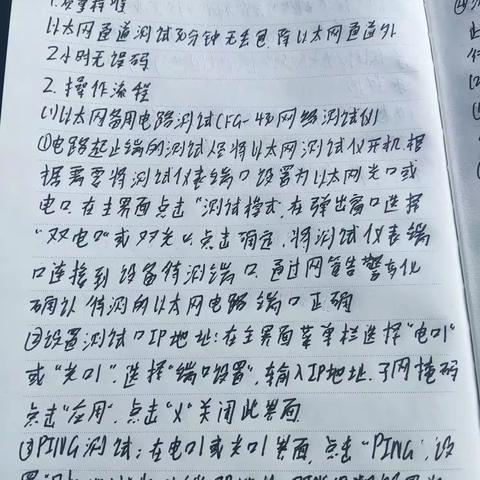 以太网通道测试30分钟无丢包 除以太网通道外
2小时无误码
2. 操作流程
(1)以太网备用电路测试(CFG-43网络测试仪)
①电路起止端的测试人员将以太网测试仪开机.根
据需要将测试仪表端口设置为以太网光口或
电口.在主界面点击"测试模式.在弹出窗口选择
"双电口"或双光口.点击确定.将测试仪表端
口连接到设备待测端口.通过网管告警变化
确认待测的以太网电路端口正确
②设置测试口IP地址:在主界面菜单栏选择"电口1"
或"光口1".选择"端口设置".输入IP地址.子网掩码
点击"应用".点击"X"关闭此界面
③PING测试:在电口1或光口1界面.点击"PING".设